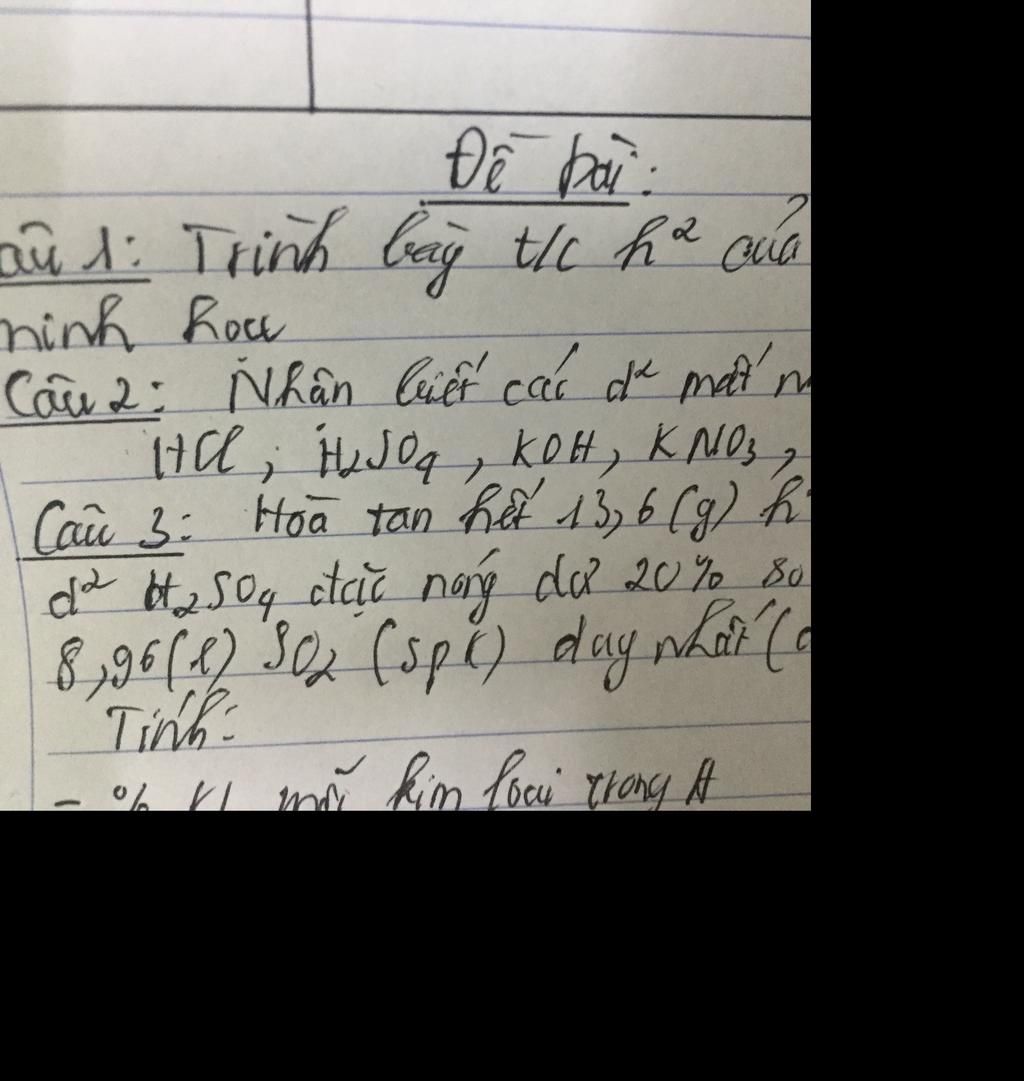 Đề bài:
âu 1: Trình bày t/c h² của
minh hoạ
Câu 2: Nhân biết các d² mất
HCl, H₂SO₄, KOH, KNO₃,
Câu 3: Hoà tan hết 13,6 (g) h
d² H₂SO₄ đặc nóng dư 20% so
8,96 (l) SO₂ (spk) duy nhất (
Tính:
- % Kl mỗi kim loại trong A